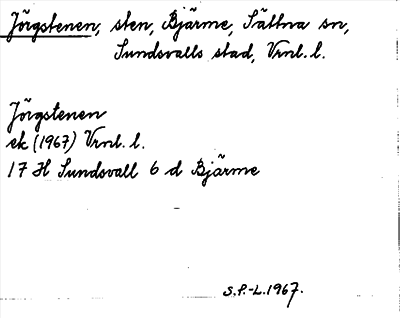 Jörgstenen, sten, Bjärme, Sättna sn,
Sundsvalls stad, Vrnl. l.
Jörgstenen
ek (1967) Vrnl. l.
17 H Sundsvall 6 d Bjärme
S.P.-L. 1967.